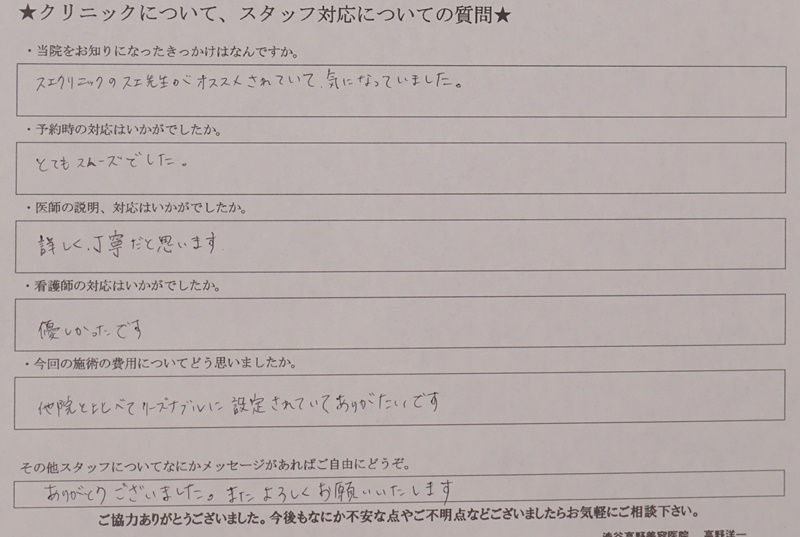 ★クリニックについて、スタッフ対応についての質問★
・当院をお知りになったきっかけはなんですか。
スエクリニックのスエ先生がオススメされていて、気になっていました。
・予約時の対応はいかがでしたか。
とてもスムーズでした。
・医師の説明、対応はいかがでしたか。
詳しく、丁寧だと思います
・看護師の対応はいかがでしたか。
優しかったです
・今回の施術の費用についてどう思いましたか。
他院と比べてリーズナブルに設定されていてありがたいです
その他スタッフについてなにかメッセージがあればご自由にどうぞ。
ありがとうございました。またよろしくお願いいたします
ご協力ありがとうございました。今後もなにか不安な点やご不明点などございましたらお気軽にご相談下さい。
渋谷高野美容医院 高野洋一